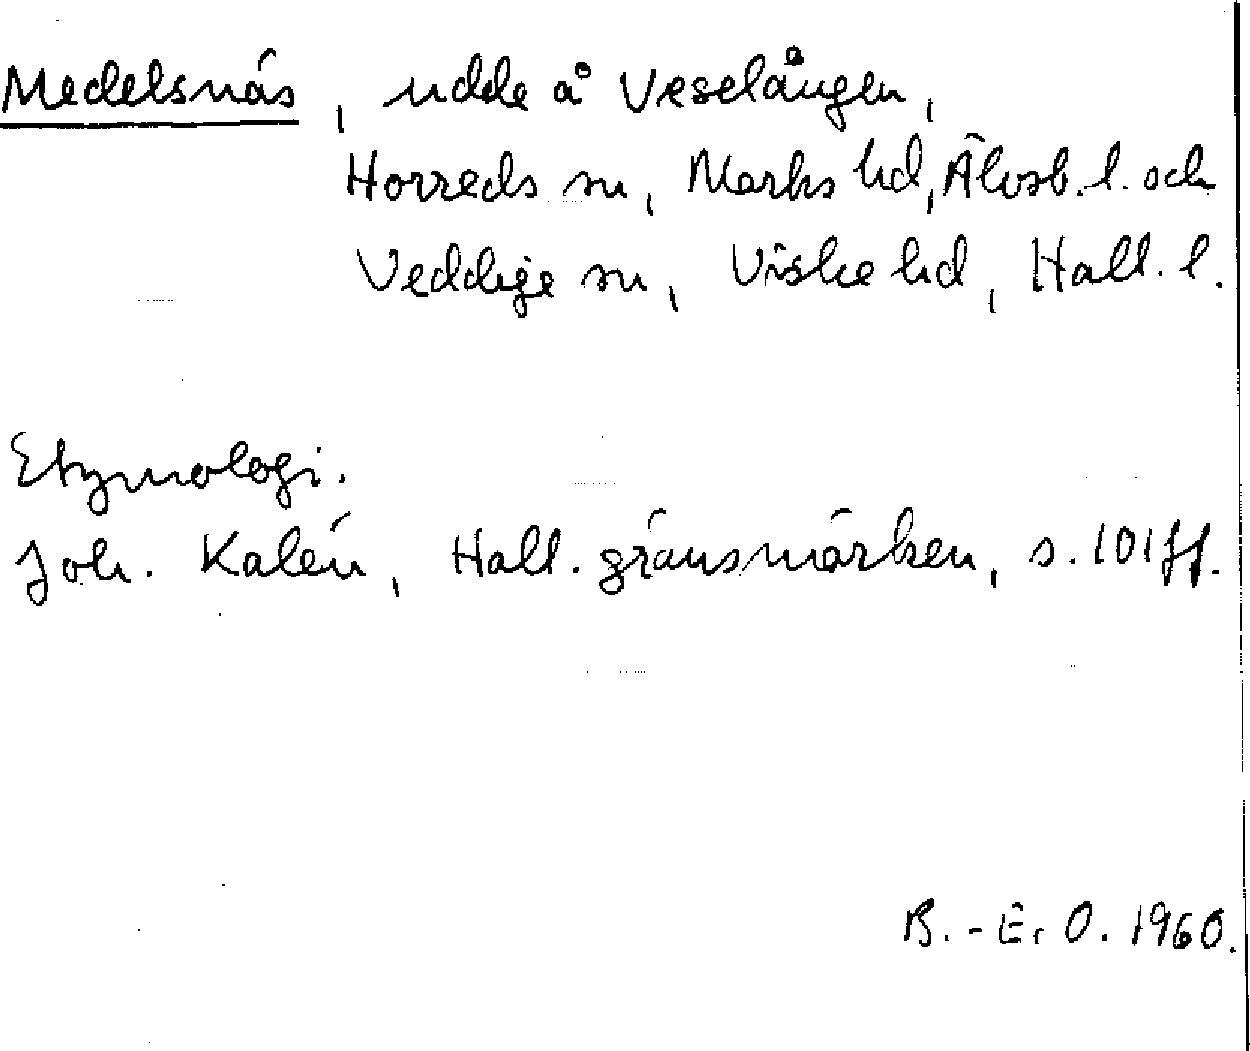 Medelsnäs, udde å Veselången,
Horreds sn, Marks hd, Älvsb. l. och
Veddige sn, Viske hd, Hall. l.
Etymologi.
Joh. Kalén, Hall. gränsmärken, s. 101 ff.
B.-E. O. 1960.